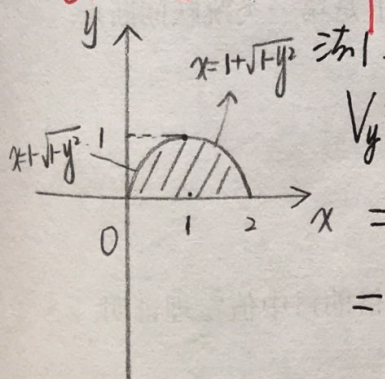 y
x=1+√1-y²
法1.
x=1-√1-y²
1
V_y
0
1
2
x
=
=